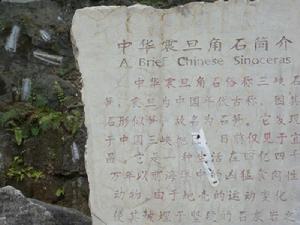 中华震旦角石简介
A Brief Chinese Sinoceras
中华震旦角石俗称三峡石
笋，震旦为中国年代古称，因其
石形似笋，故名为石笋。它发现
于中国三峡地 目前仅见于宜
昌。它是一种生活在四亿四千
万年以 海洋中的凶猛食肉性
动物。由于地壳的运动变化
使其被埋于坚硬的石灰岩之